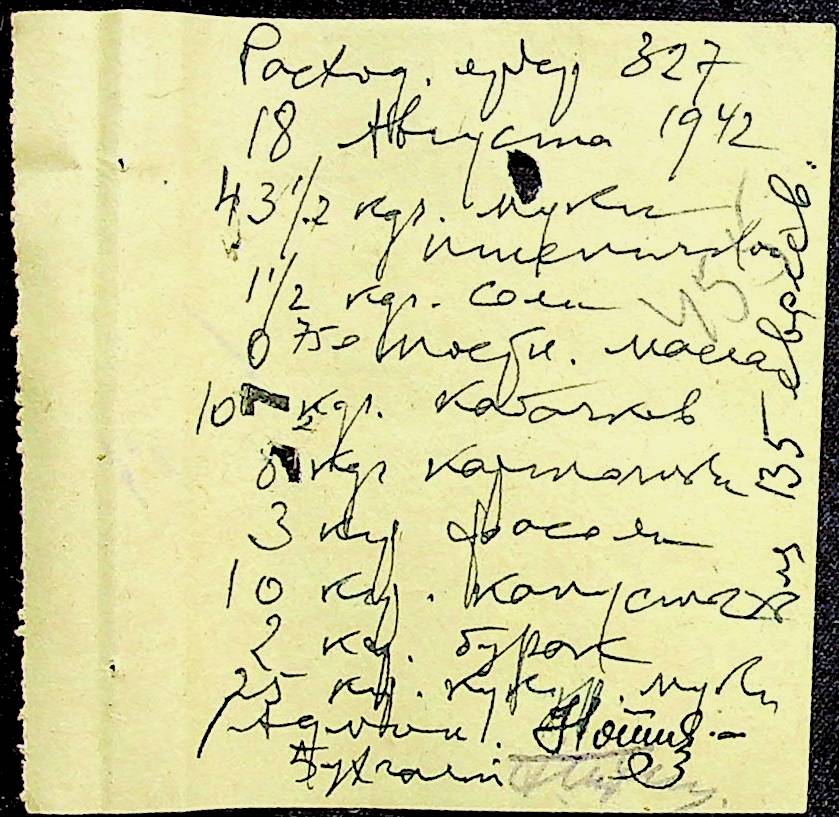 Расход. ордер 327
18 Августа 1942
43 1/2 кгр. муки
пшеничной
1 1/2 кгр. соли
0 750 постн. масла
10 1/2 кгр. кабачков
кгр картошки
3 кгр фасоли
10 кгр. капусты
2 кгр. бурак
25 кгр. кукур. муки
Админ.
Бухгалт
для 135 евреев.